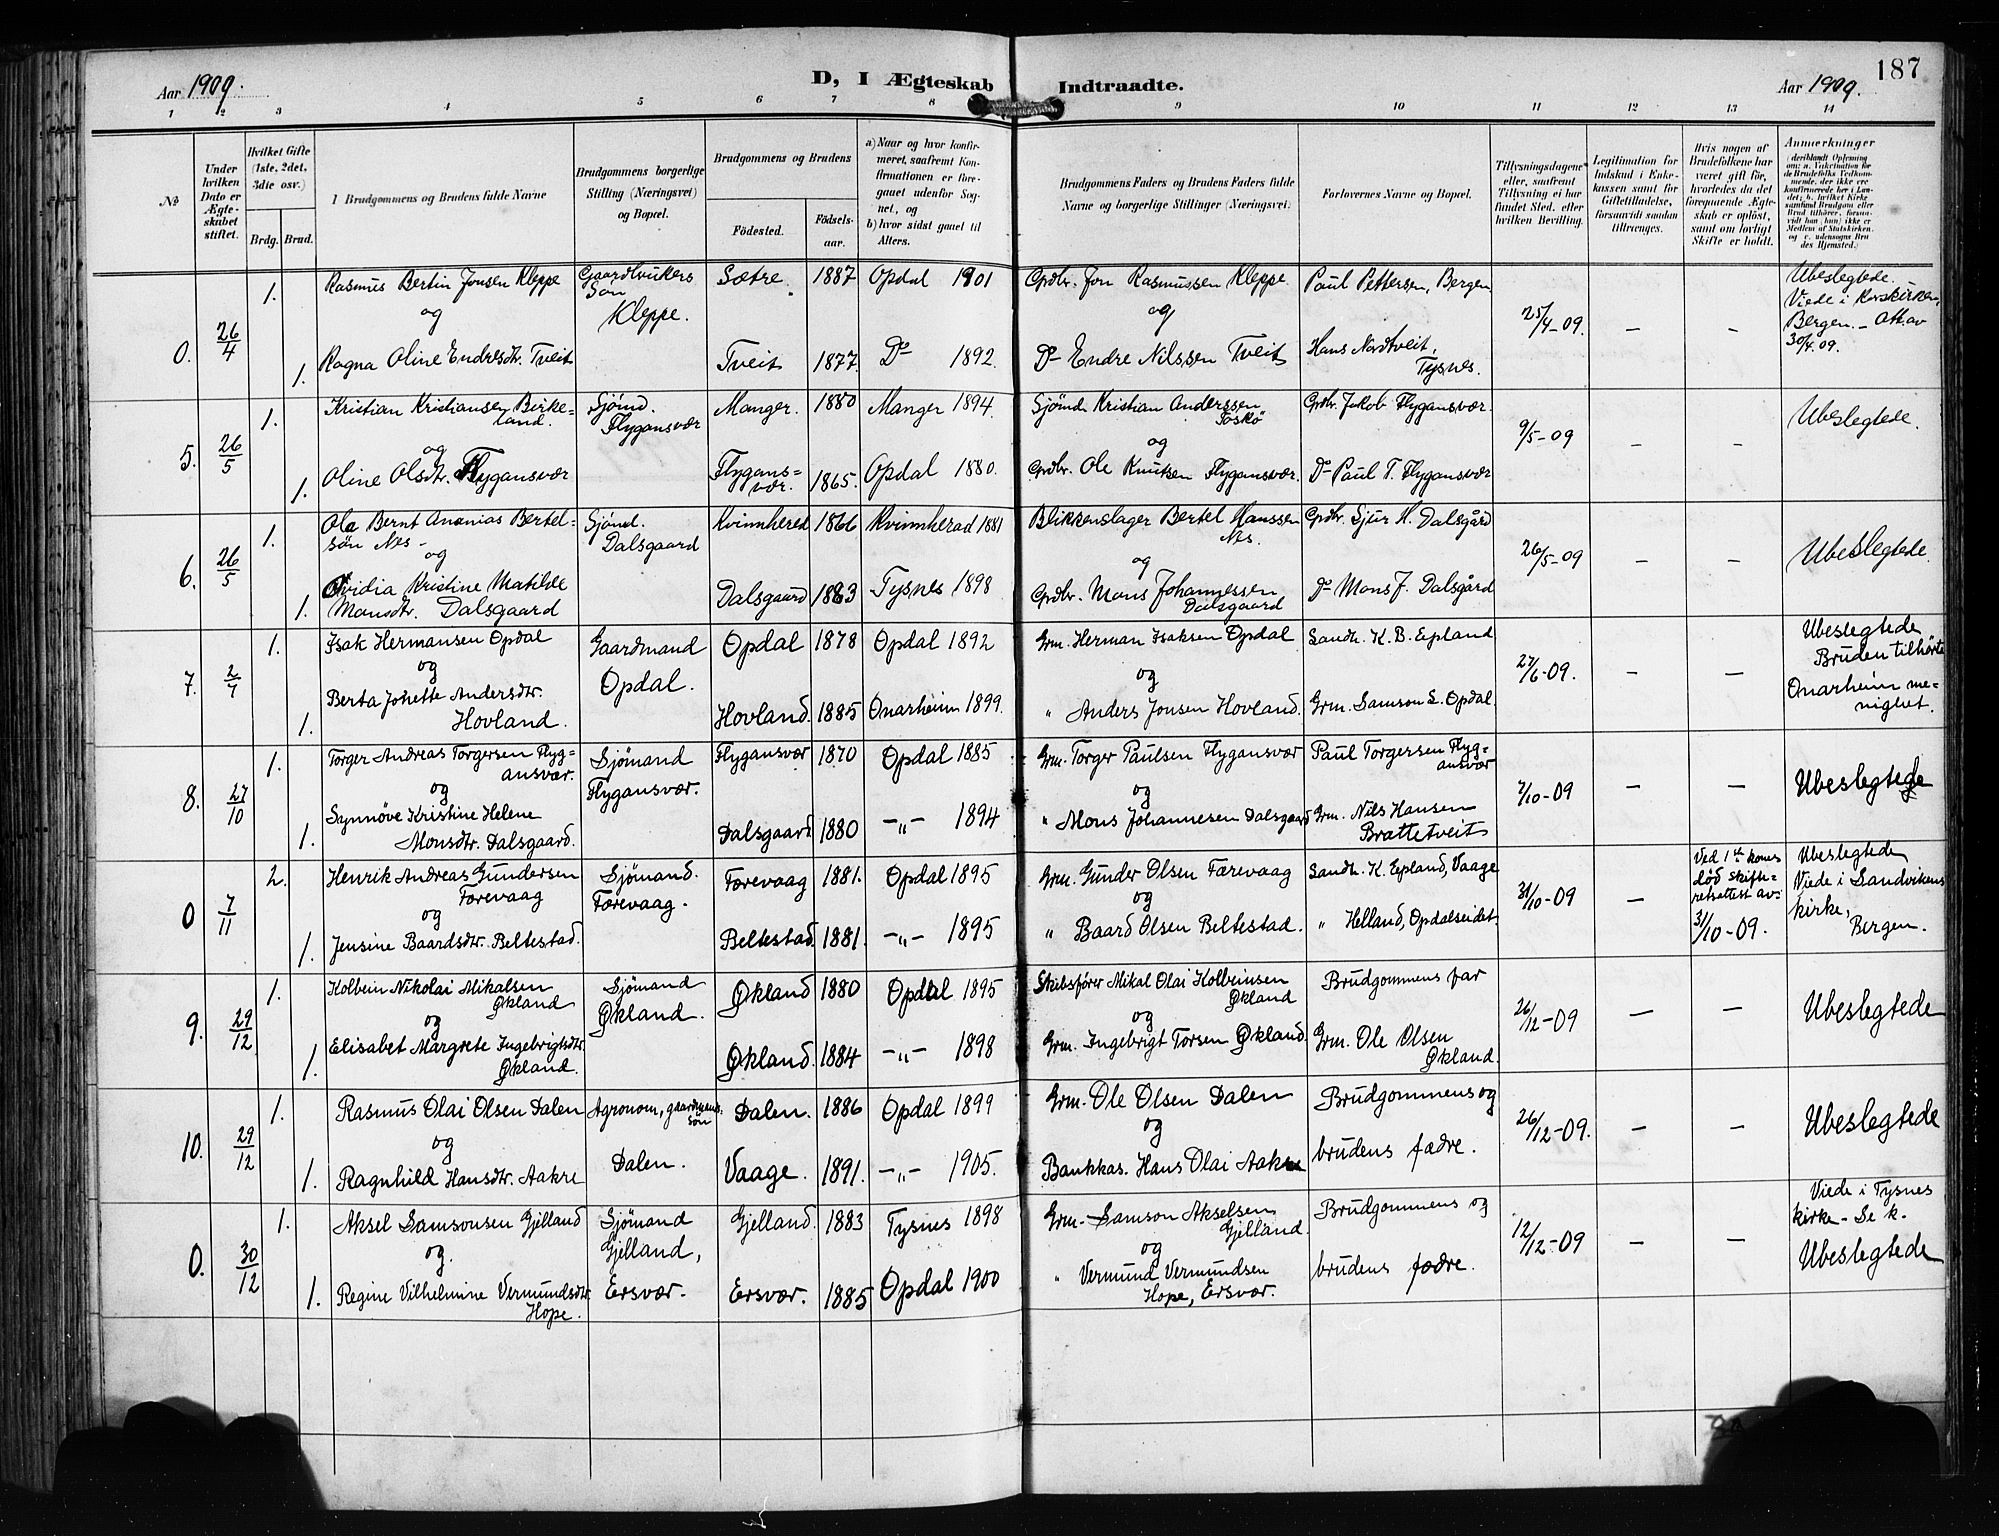 Aar 1909.
D, I Ægteskab Indtraadte.
Aar 1909.
187
1 2 3 4 5 6 7 8 9 10 11 12 13 14
No
Under hvilken Dato er Ægteskabet stiftet.
Hvilket Gifte (1ste, 2det, 3die osv.)
Brdg. Brud.
1 Brudgommens og Brudens fulde Navne
Brudgommens borgerlige Stilling (Næringsvei) og Bopæl.
Brudgommens og Brudens
Fødested.
Fødselsaar.
a) Naar og hvor konfirmeret, saafremt Konfirmationen er foregaaet udenfor Sognet, og
b) hvor sidst gaaet til Alters.
Brudgommens Faders og Brudens Faders fulde Navne og borgerlige Stillinger (Næringsvei)
Forlovernes Navne og Bopæl.
Tillysningsdagene eller, saafremt Tillysning ei har fundet Sted, efter hvilken Bevilling.
Legitimation for Indskud i Enkekassen samt for Giftetilladelse, forsaavidt saadan tiltrænges.
Hvis nogen af Brudefolkene har været gift før, hvorledes da det foregaaende Ægteskab er opløst, samt om lovligt Skifte er holdt.
Anmærkninger
(deriblandt Oplysning om: a. Vakcination for de Brudefolks Vedkommende, der ikke ere konfirmerede her i Landet; b. hvilket Kirkesamfund Brudgom eller Brud tilhører, forsaavidt han (hun) ikke er Medlem af Statskirken og c. udensogns Brudes Hjemsted.)
0. 26/4 1. Rasmus Bertin Jonsen Kleppe Gaardbrukers Søn Kleppe. Sætre. 1887 Opdal 1901 Grdbr. Jon Rasmussen Kleppe Paul Pettersen, Bergen 25/4-09. – – Ubeslegtede. Viede i Korskirken, Bergen. – Att. av 30/4.09.
og
1. Ragna Oline Endresdtr. Tveit Tveit 1877. Do 1892. Do Endre Nilssen Tveit Hans Nordtveit, Tysnes.
5. 26/5 1. Kristian Kristiansen Birkeland. Sjømd. Flygansvær Manger. 1880 Manger 1894. Sjømd. Kristian Anderssen Toskø Grdbr. Jakob Flygansvær. 9/5-09 – – Ubeslegtede.
og
1. Oline Olsdtr. Flygansvær Flygansvær. 1865. Opdal 1880. Grdbr. Ole Knutsen Flygansvær. Do Paul T. Flygansvær
6. 26/5 1. Ole Bernt Ananias Bertelsøn Nes – Sjømd. Dalsgaard Kvinnherad 1866 Kvinnherad 1881 Blikkenslager Bertel Hanssen Nes. Grdbr. Sjur H. Dalsgård 26/5-09 – – Ubeslegtede.
og
1. Ovidia Kristine Matilde Monsdtr. Dalsgaard Dalsgaard 1883 Tysnes 1898 Grdbr. Mons Johannessen Dalsgaard Do Mons J. Dalsgård
7. 2/7 1. Isak Hermansen Opdal Gaardmand Opdal. Opdal 1878 Opdal 1892 Grm. Herman Isaksen Opdal Sandh. K. B. Epland 27/6-09. – – Ubeslegtede Bruden tilhørte Onarheim menighet.
og
1. Berta Johette Andersdtr. Hovland. Hovland. 1885 Onarheim 1899. " Anders Jonsen Hovland. Grm. Samson L. Opdal.
8. 27/10 1. Torger Andreas Torgersen Flygansvær. Sjømand Flygansvær. Flygansvær 1870 Opdal 1885 Grm. Torger Paulsen Flygansvær Paul Torgersen Flygansvær 7/10-09 – – Ubeslegtede
og
1. Synnøve Kristine Helene Monsdtr. Dalsgaard. Dalsgaard 1880 –"– 1894 " Mons Johannesen Dalsgaard Grm. Nils Hansen Brattetveit
0 7/11 2. Henrik Andreas Gundersen Færevaag Sjømand. Færevaag. Færevaag 1881. Opdal 1895 Grm. Gunder Olsen Færevaag Sandh. K. Epland, Vaage 31/10-09 – Ved 1ste kones død skifteretsattest av 31/10-09. Ubeslegtede Viede i Sandvikens kirke, Bergen.
og
1. Jensine Baardsdtr. Beltestad. Beltestad. 1881. –"– 1895 " Baard Olsen Beltestad. " Helland, Opdalseidet.
9. 29/12 1. Kolbein Nikolai Mikalsen Økland Sjømand Økland. Økland 1880 Opdal 1895 Skibsfører Mikal Olai Kolbeinsen Økland Brudgommens far 26/12-09 – – Ubeslegtede
og
1. Elisabet Margrete Ingebrigtsdtr. Økland. Økland. 1884 –"– 1898 Grm. Ingebrigt Torsen Økland. Grm. Ole Olsen Økland.
10. 29/12 1. Rasmus Olai Olsen Dalen Agronom, gaardmandssøn Dalen. Dalen. 1886 Opdal 1899 Grm. Ole Olsen Dalen Brudgommens og 26/12-09. – – Ubeslegtede
og
1. Ragnhild Hansdtr. Aakre Vaage. 1891. –"– 1905. Bankkas. Hans Olai Aakre brudens fædre.
0. 30/12 1. Aksel Samsonsen Gjelland Sjømand Gjelland, Ersvær. Gjelland. 1883 Tysnes 1898 Grm. Samson Akselsen Gjelland. Brudgommens og 12/12-09 – – Viede i Tysnes kirke – Se k. Ubeslegtede
og.
1. Regine Vilhelmine Vermundsdtr. Hope. Ersvær. 1885 Opdal 1900 " Vermund Vermundsen Hope, Ersvær. brudens fædre.